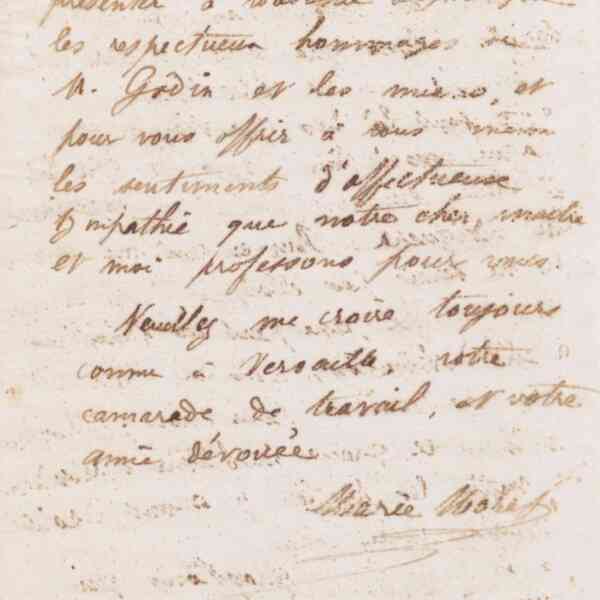 présenter à
les respectueux hommages de
M. Godin et les miens, et
pour vous offrir à vous même
les sentiments d'affectueuse
sympathie que notre cher maître
et moi professons pour vous.
Veuillez me croire toujours
comme à Versailles, votre
camarade de travail, et votre
amie dévouée
Marie Moret